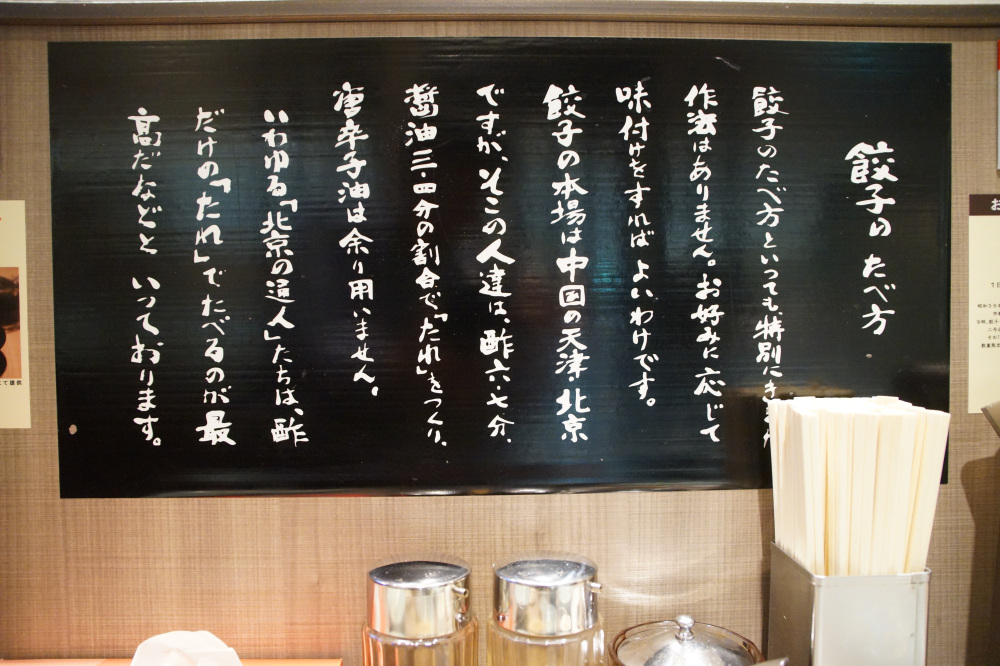 餃子のたべ方
餃子のたべ方といっても、特別にき
作法はありません。お好みに応じて
味付けをすればよいわけです。
餃子の本場は中国の天津・北京
ですが、そこの人達は、酢六・七分、
醤油三・四分の割合で「たれ」をつくり、
唐辛子油は余り用いません。
いわゆる「北京の通人」たちは、酢
だけの「たれ」でたべるのが最
高だなどといっております。
て提供
お